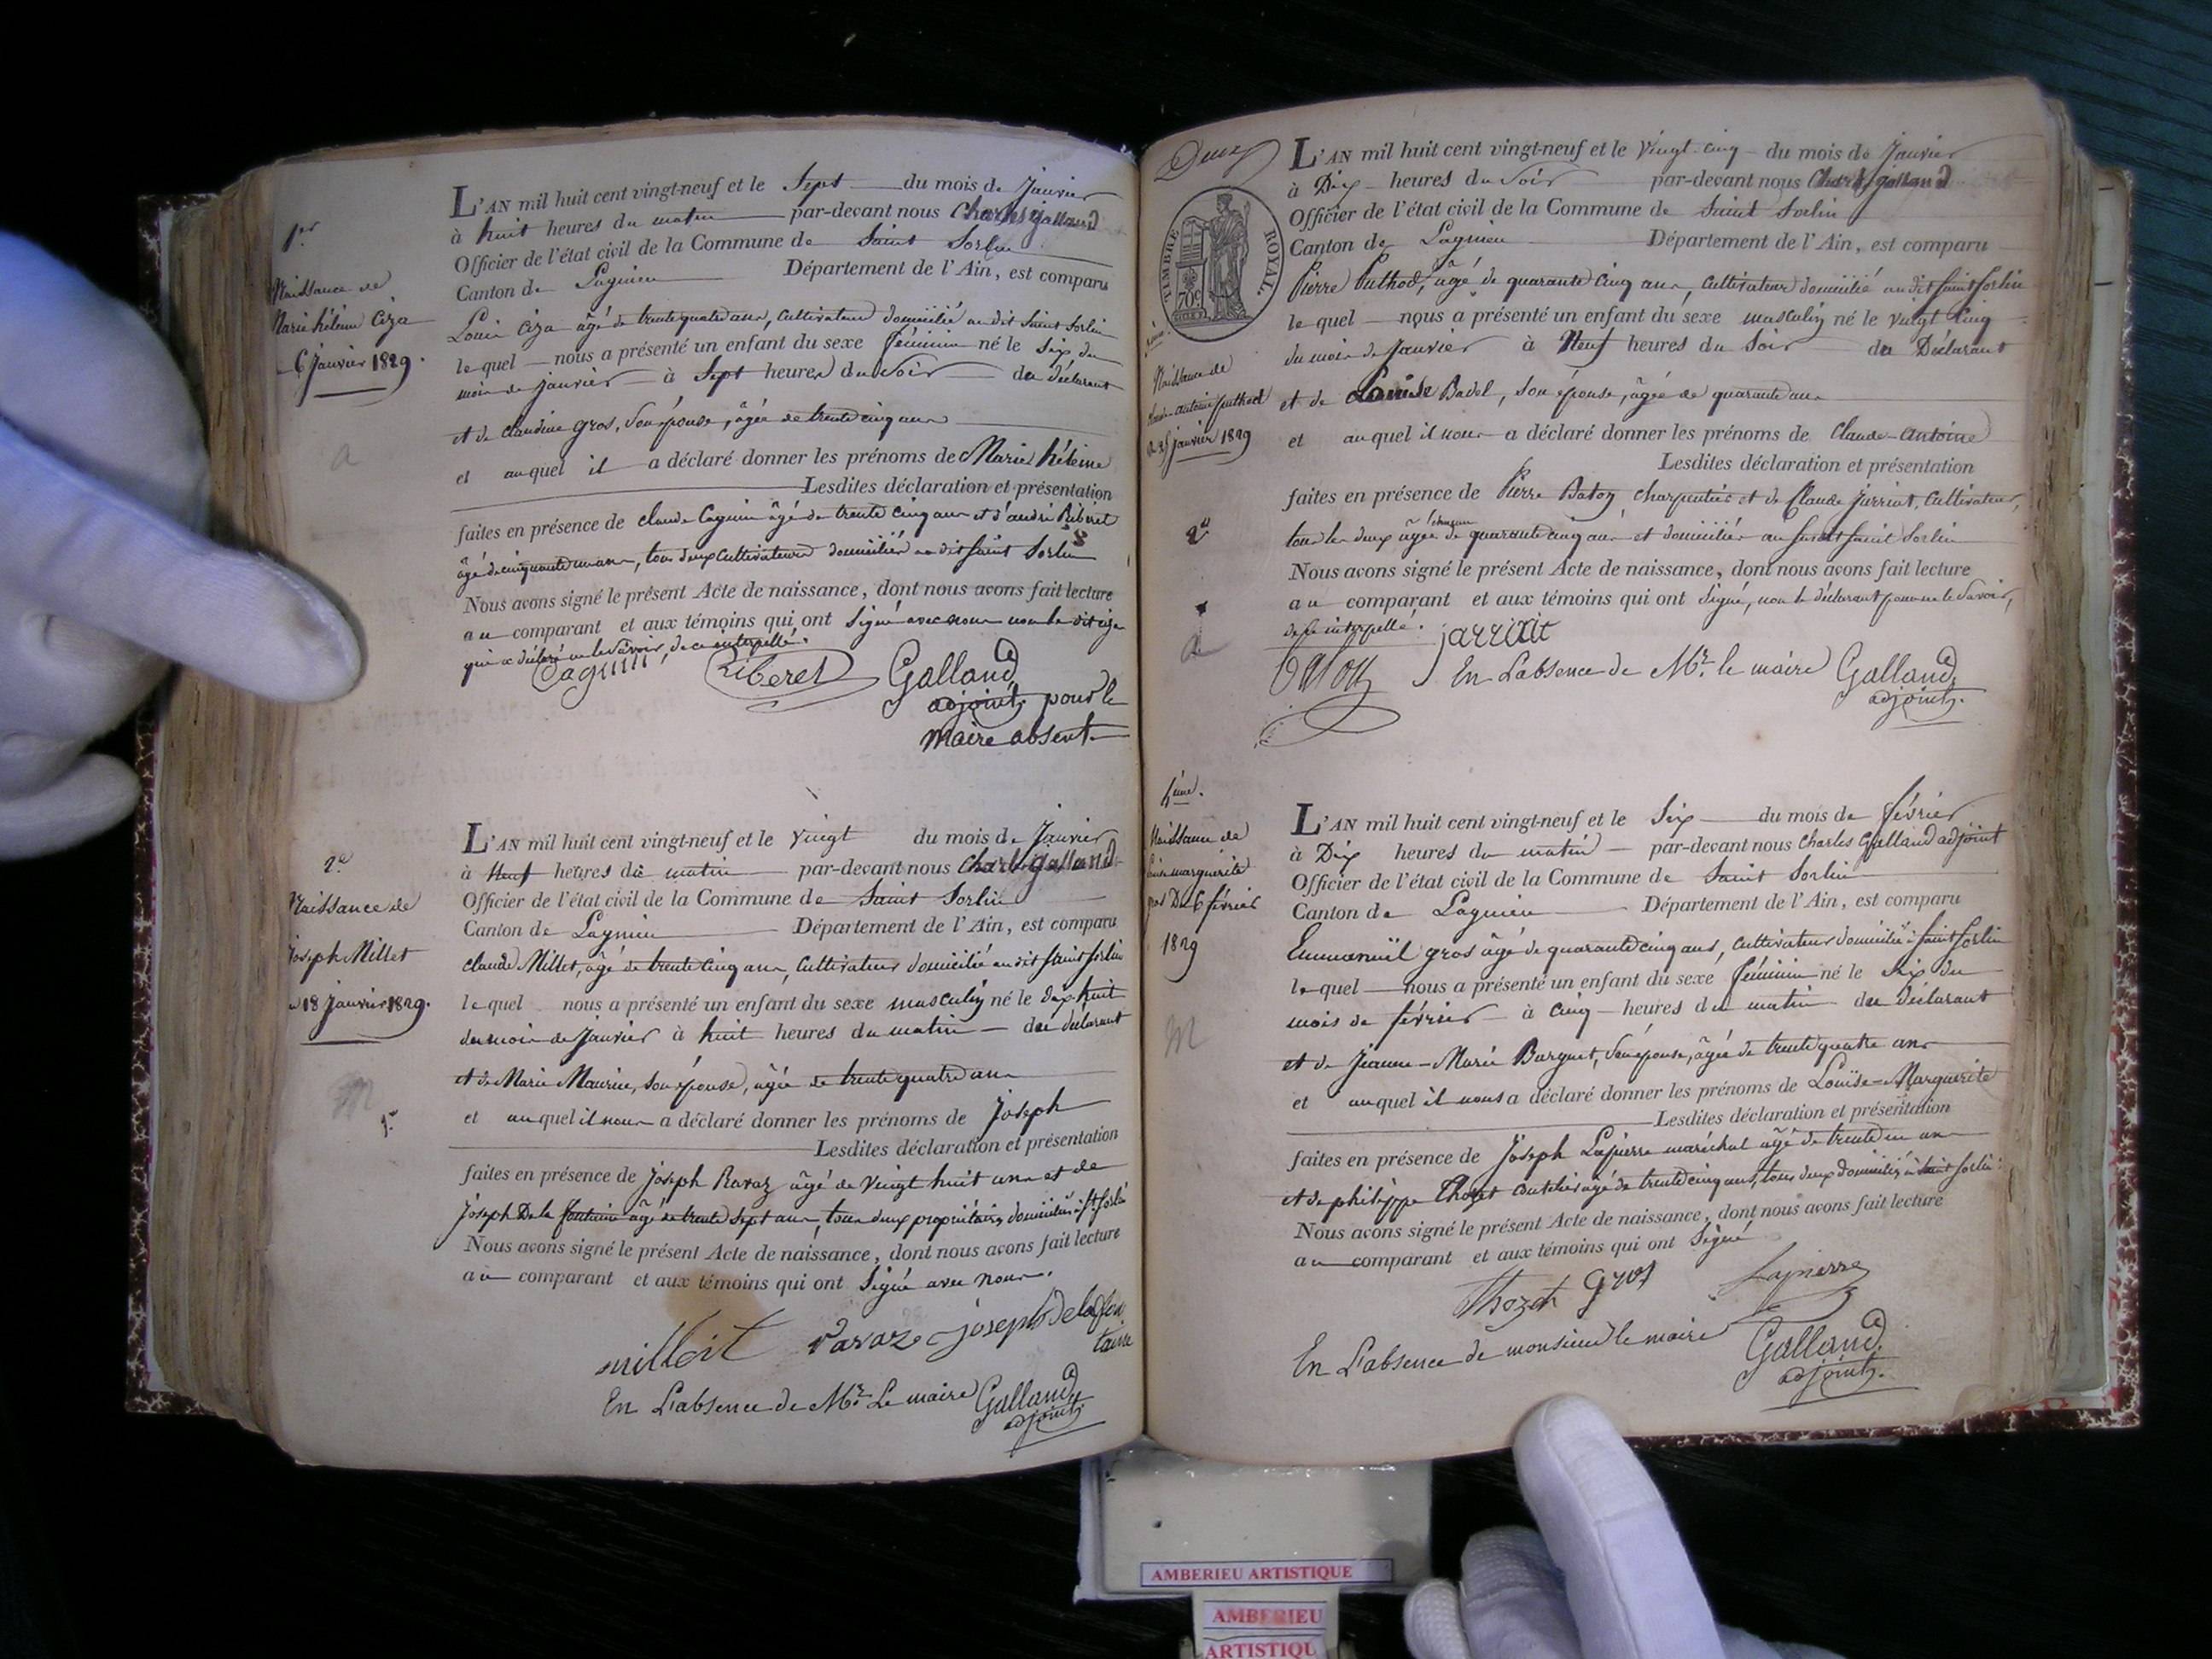 1er
Naissance de
Marie hélène Ciza
6 Janvier 1829.
L'AN mil huit cent vingt-neuf et le Sept du mois de Janvier
à huit heures du matin par-devant nous Charles galland
Officier de l'état civil de la Commune de Saint Sorlin
Canton de Lagnieu Département de l'Ain, est comparu
Louis Ciza âgé de trente quatre ans, Cultivateur domicilié au dit Saint Sorlin
lequel nous a présenté un enfant du sexe féminin né le Six du
mois de janvier à Sept heures du Soir du déclarant
et de Claudine gros, Son épouse, âgée de trente cinq ans
et auquel il a déclaré donner les prénoms de Marie hélène
Lesdites déclaration et présentation
faites en présence de Claude Caguin âgé de trente cinq ans et d'andré Riberet
âgé de cinquante un ans, tous deux Cultivateurs domiciliés au dit Saint Sorlin
Nous avons signé le présent Acte de naissance, dont nous avons fait lecture
au comparant et aux témoins qui ont Signé avec nous non le dit ciza
qui a déclaré ne le Savoir, de ce interpellé.
Caguin Riberet Galland
adjoint, pour le
maire absent
2e
Naissance de
Joseph Millet
18 janvier 1829.
1er
L'AN mil huit cent vingt-neuf et le vingt du mois de Janvier
à Neuf heures du matin par-devant nous Charles galland
Officier de l'état civil de la Commune de Saint Sorlin
Canton de Lagnieu Département de l'Ain, est comparu
Claude Millet, âgé de trente cinq ans, Cultivateur domicilié au dit Saint Sorlin
lequel nous a présenté un enfant du sexe masculin né le dix huit
du mois de Janvier à huit heures du matin du déclarant
et de Marie Maurine, Son épouse, âgée de trente quatre ans
et auquel il nous a déclaré donner les prénoms de Joseph
Lesdites déclaration et présentation
faites en présence de Joseph Ravaz âgé de Vingt huit ans et de
Joseph De la fontaine âgé de trente sept ans, tous deux propriétaires domiciliés à St Sorlin
Nous avons signé le présent Acte de naissance, dont nous avons fait lecture
au comparant et aux témoins qui ont Signé avec nous.
milleit ravaz joseph delafon
taine
En L'absence de Mr. Le maire Galland
adjoint.
Deux
TIMBRE ROYAL.
70c
Naissance de
Claude-antoine puthod
25 janvier 1829
2e
L'AN mil huit cent vingt-neuf et le Vingt-cinq du mois de Janvier
à Dix heures du Soir par-devant nous Charles galland
Officier de l'état civil de la Commune de Saint Sorlin
Canton de Lagnieu Département de l'Ain, est comparu
Pierre Puthod, âgé de quarante Cinq ans, Cultivateur domicilié au dit Saint Sorlin
lequel nous a présenté un enfant du sexe masculin né le vingt Cinq
du mois de Janvier à Neuf heures du Soir du Déclarant
et de Louise Badel, Son épouse, âgée de quarante ans
et auquel il nous a déclaré donner les prénoms de Claude-Antoine
Lesdites déclaration et présentation
faites en présence de Pierre Baton, Charpentier et de Claude Jarriat, Cultivateur,
tous les deux âgés de chacun quarante cinq ans et domiciliés au susdit Saint Sorlin
Nous avons signé le présent Acte de naissance, dont nous avons fait lecture
au comparant et aux témoins qui ont Signé, non le déclarant pour ne le Savoir,
de ce interpellé.
jarriat
En L'absence de Mr. le maire Galland
adjoint.
4eme.
Naissance de
Louise marguerite
gros Du 6 février
1829
L'AN mil huit cent vingt-neuf et le Six du mois de février
à Dix heures du matin par-devant nous Charles Galland adjoint
Officier de l'état civil de la Commune de Saint Sorlin
Canton de Lagnieu Département de l'Ain, est comparu
Emmanuël gros âgé de quarante cinq ans, Cultivateur domicilié à Saint Sorlin
lequel nous a présenté un enfant du sexe féminin né le Six du
mois de février à Cinq heures du matin du déclarant
et de Jeanne-Marie Burguet, Son épouse, âgée de trente quatre ans
et auquel il nous a déclaré donner les prénoms de Louïse-Marguerite
Lesdites déclaration et présentation
faites en présence de Joseph Lapierre maréchal âgé de trente un ans
et de philippe Thozet âgé de trente cinq ans, tous deux domiciliés à Saint Sorlin
Nous avons signé le présent Acte de naissance, dont nous avons fait lecture
au comparant et aux témoins qui ont Signé
Thozet gros Lapierre
En L'absence de monsieur le maire Galland
adjoint.
AMBERIEU ARTISTIQUE
AMBERIEU
ARTISTIQU